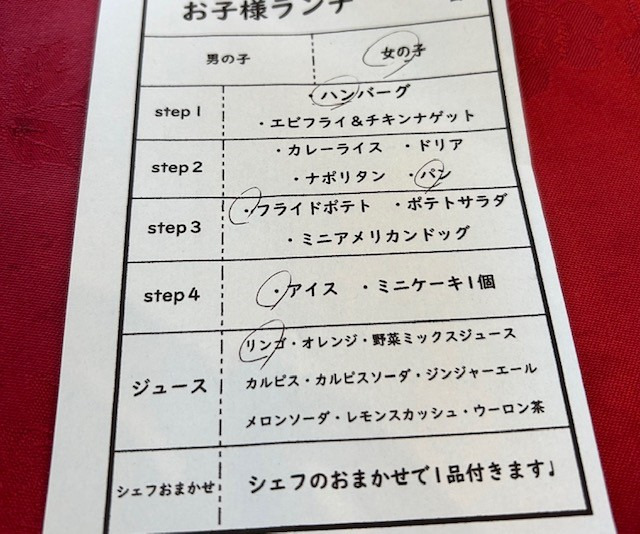 お子様ランチ
男の子 女の子
step1
・ハンバーグ
・エビフライ&チキンナゲット
step2
・カレーライス ・ドリア
・ナポリタン ・パン
step3
・フライドポテト ・ポテトサラダ
・ミニアメリカンドッグ
step4
・アイス ・ミニケーキ1個
ジュース
リンゴ・オレンジ・野菜ミックスジュース
カルピス・カルピスソーダ・ジンジャーエール
メロンソーダ・レモンスカッシュ・ウーロン茶
シェフおまかせ
シェフのおまかせで1品付きます♩